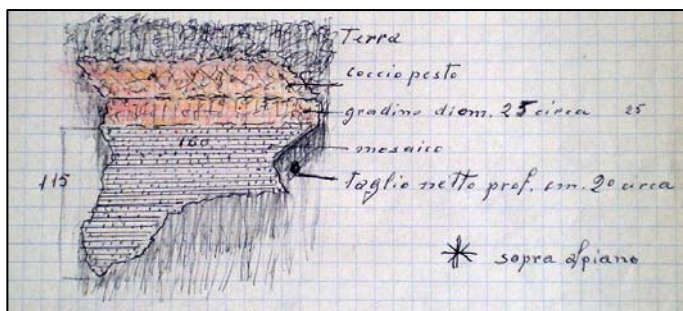 Terra
coccio pesto
gradino diam. 25 circa 25
160
mosaico
115
taglio netto prof. cm. 20 circa
sopra al piano